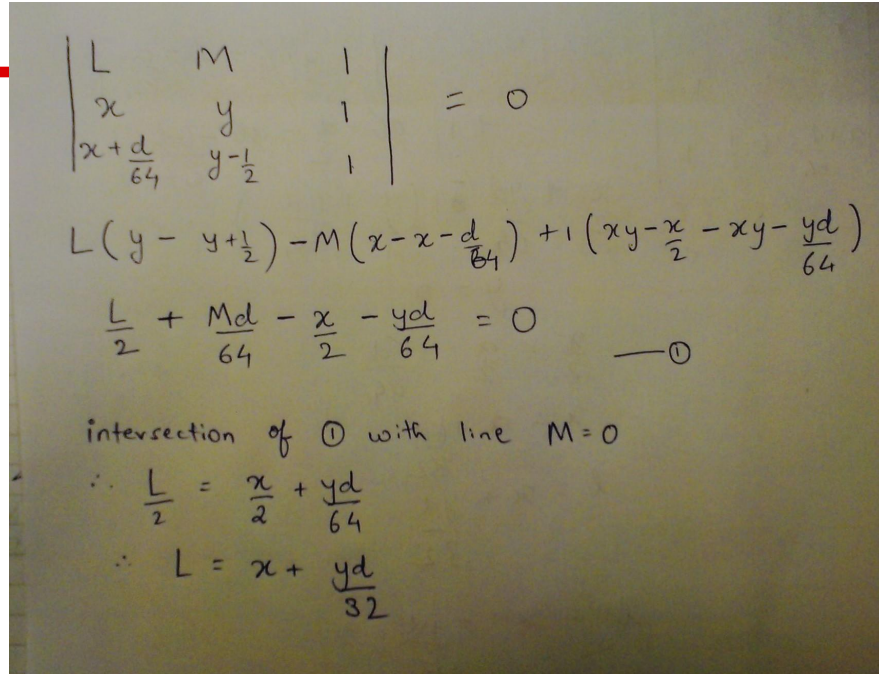 | L M 1 |
| x y 1 | = 0
| x + d/64 y - 1/2 1 |
L ( y - y + 1/2 ) - M ( x - x - d/64 ) + 1 ( xy - x/2 - xy - yd/64 )
L/2 + Md/64 - x/2 - yd/64 = 0 —①
intersection of ① with line M = 0
∴ L/2 = x/2 + yd/64
∴ L = x + yd/32